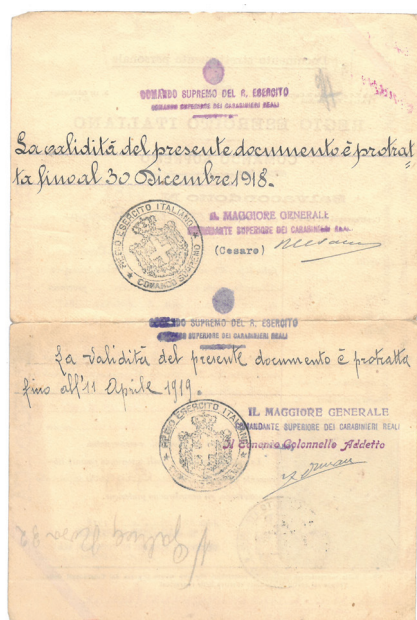 COMANDO SUPREMO DEL R. ESERCITO
COMANDO SUPERIORE DEI CARABINIERI REALI
La validità del presente documento è protrat=
ta fino al 30 Dicembre 1918.
IL MAGGIORE GENERALE
COMANDANTE SUPERIORE DEI CARABINIERI REALI
(Cesaro)
REGIO ESERCITO ITALIANO
COMANDO SUPREMO
COMANDO SUPREMO DEL R. ESERCITO
COMANDO SUPERIORE DEI CARABINIERI REALI
La validità del presente documento è protratta
fino all'11 Aprile 1919.
IL MAGGIORE GENERALE
COMANDANTE SUPERIORE DEI CARABINIERI REALI
Il Tenente Colonnello Addetto
REGIO ESERCITO ITALIANO